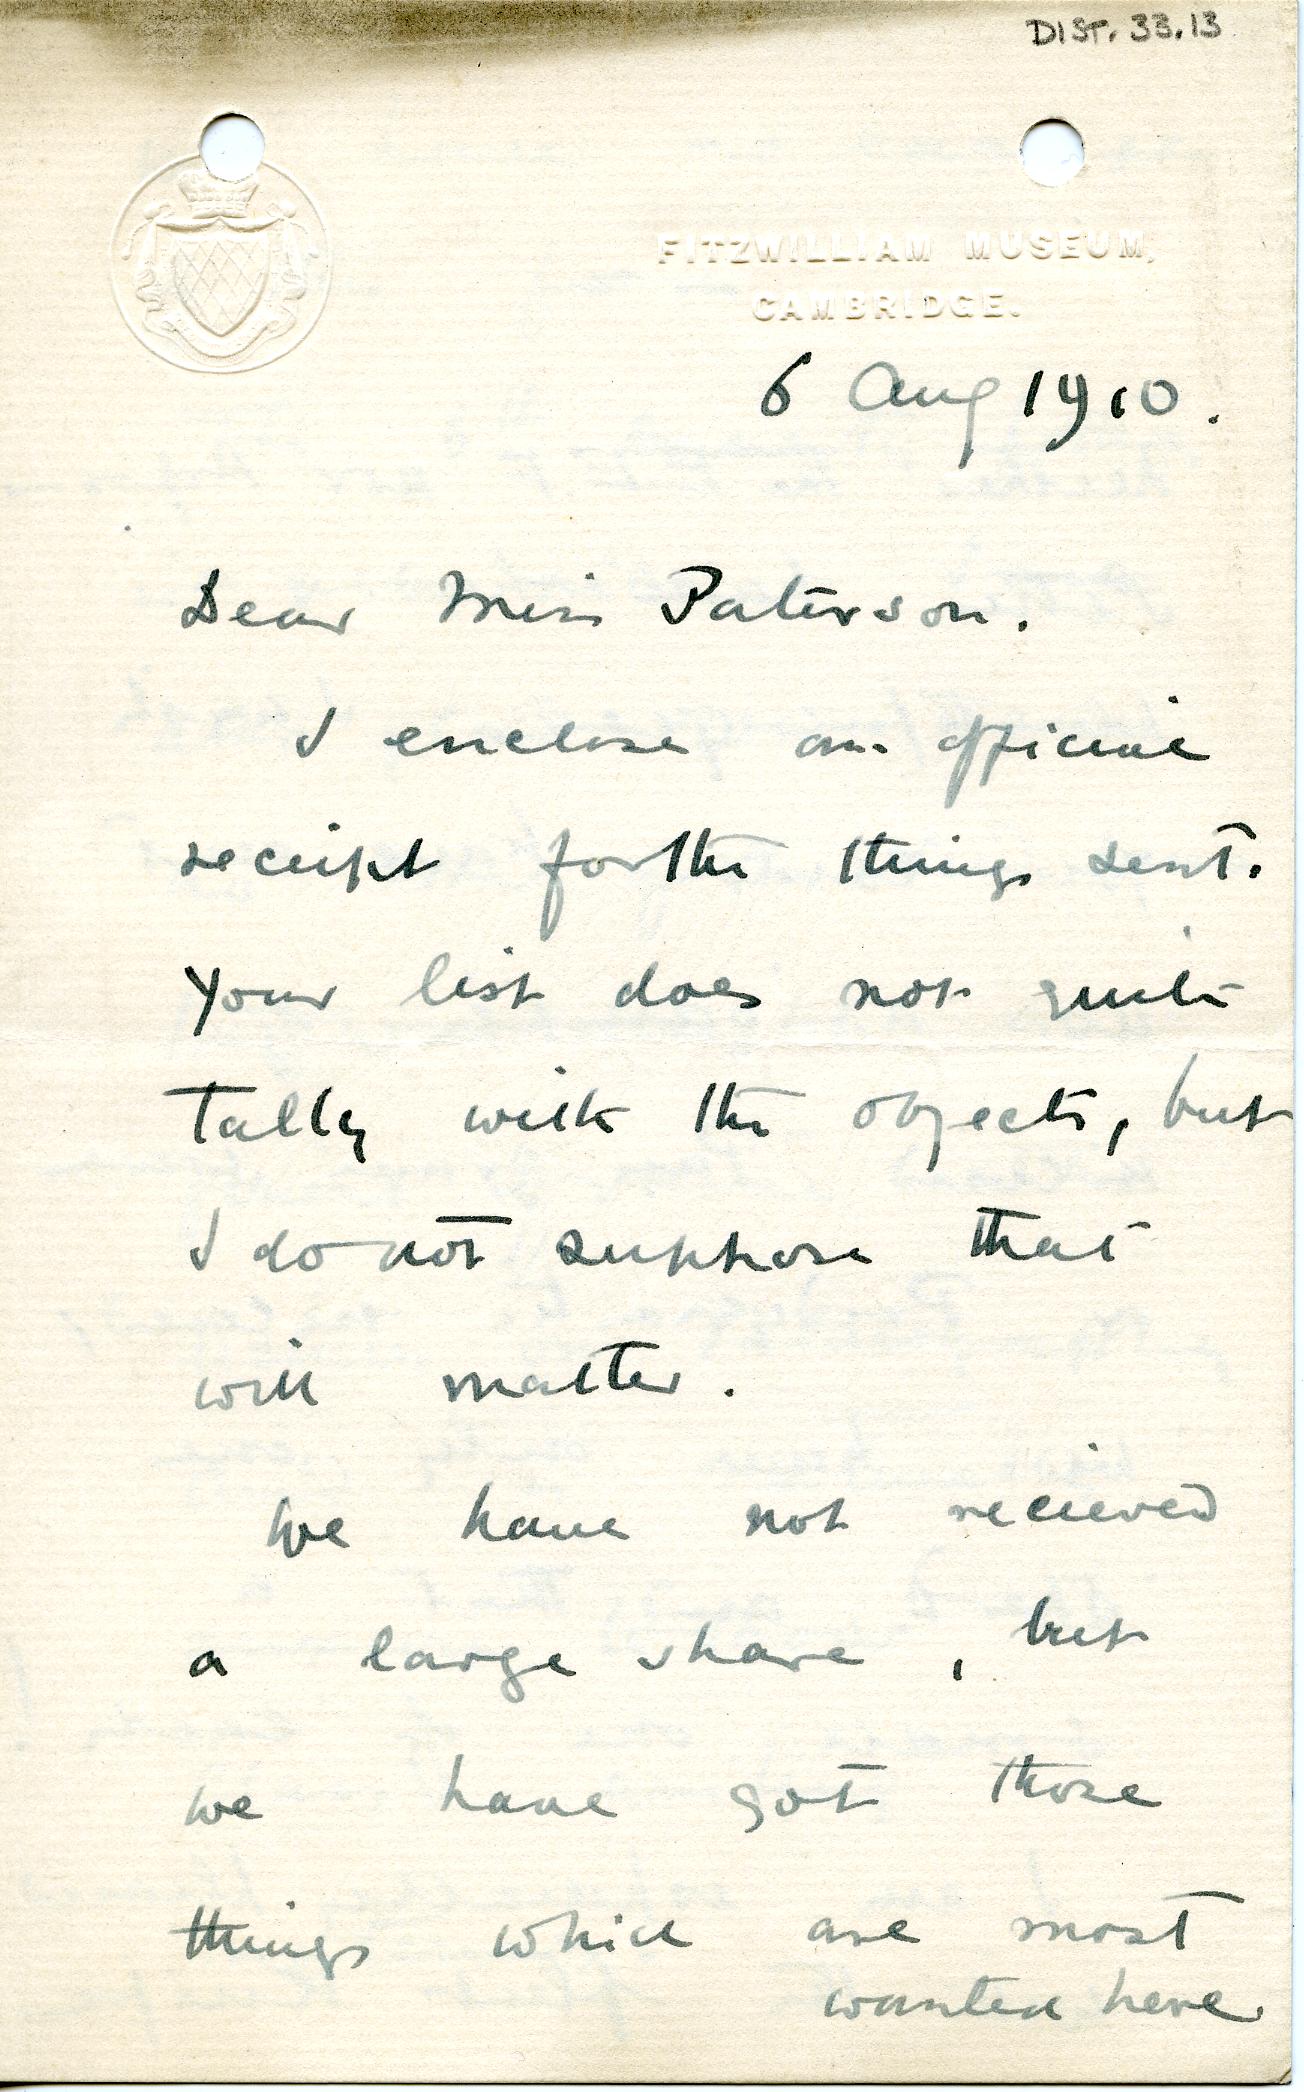 DIST. 33.13
FITZWILLIAM MUSEUM,
CAMBRIDGE.
6 Aug 1910.
Dear Miss Paterson.
I enclose an official
receipt for the things sent.
Your list does not quite
tally with the objects, but
I do not suppose that
will matter.
We have not recieved
a large share, but
we have got those
things which are most
wanted here